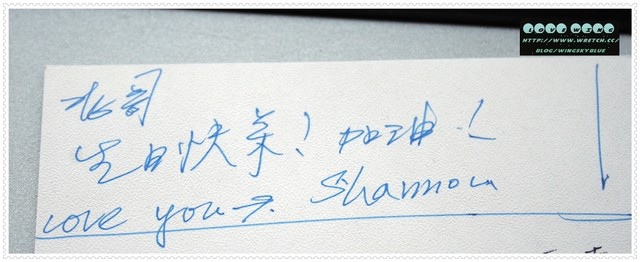 love wing
HTTP://WWW.WRETCH.CC/
BLOG/WINGSKYBLUE
生日快樂! 加油!
Love you Shannon